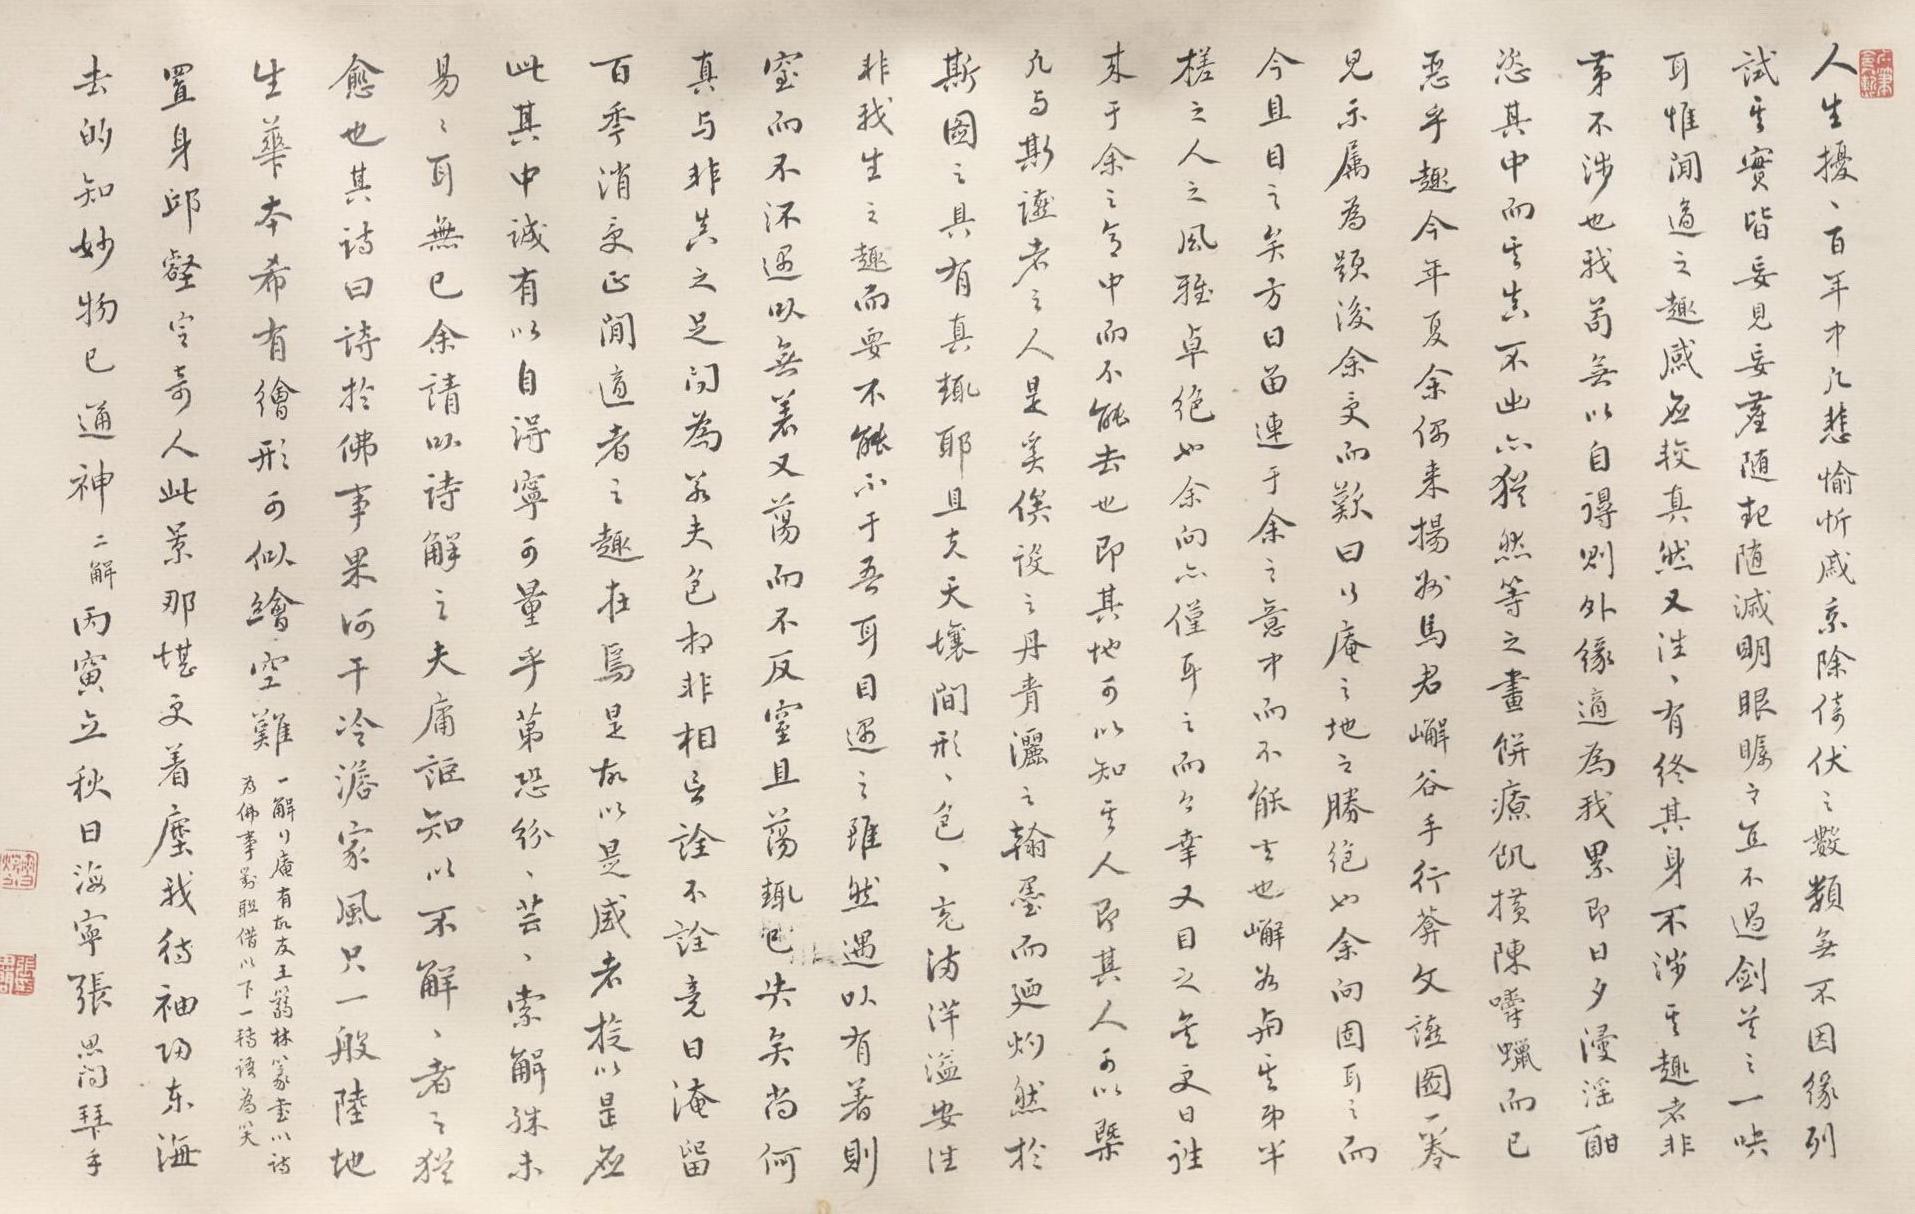 人生擾、百年中凡悲愉忻戚京除倚伏之數類無不因緣列
試其實皆妄見妄塵隨起隨滅明眼矚之直不過劍首之一吷
耳惟閒適之趣感應較真然又往、有終其身不涉其趣者非
第不涉也我苟無以自得則外緣適為我累即日夕浸淫酣
恣其中而其真不出亦猶然等之畫餅療飢橫陳嚼蠟而已
惡乎趣今年夏余偶來揚州馬君嶰谷手行菴文讌圖一卷
見示屬為題後余受而歎曰行庵之地之勝絕也余向固耳之而
今且目之矣方日留連于余之意中而不能去也嶰谷與其弟半
槎之人之風雅卓絕也余向亦僅耳之而今幸又目之矣更日往
來于余之意中而不能去也即其地可以知其人即其人可以槩
凡與斯讌者之人是奚俟設之丹青灑之翰墨而迺灼然於
斯圖之具有真趣耶且夫天壤間形、色、充滿洋溢安往
非我生之趣而要不能不于吾耳目遇之雖然遇以有著則
窒而不流遇以無著又蕩而不反窒且蕩趣已失矣尚何
真與非真之足問為若夫色相非相言詮不詮竟日淹留
百季消受正閒適者之趣在焉是故以是感者旋以是應
此其中誠有以自得寧可量乎第恐紛、芸、索解殊未
易、耳無已余請以詩解之夫庸詎知以不解、者之猶
愈也其詩曰詩於佛事果何干冷澹家風只一般陸地
生華本希有繪形可似繪空難 一解行庵有故友王蒻林篆書以詩
為佛事對聯借以下一轉語為笑
置身邱壑定奇人此景那堪更着塵我待袖歸東海
去的知妙物已通神 二解 丙寅立秋日海寧張思閎拜手